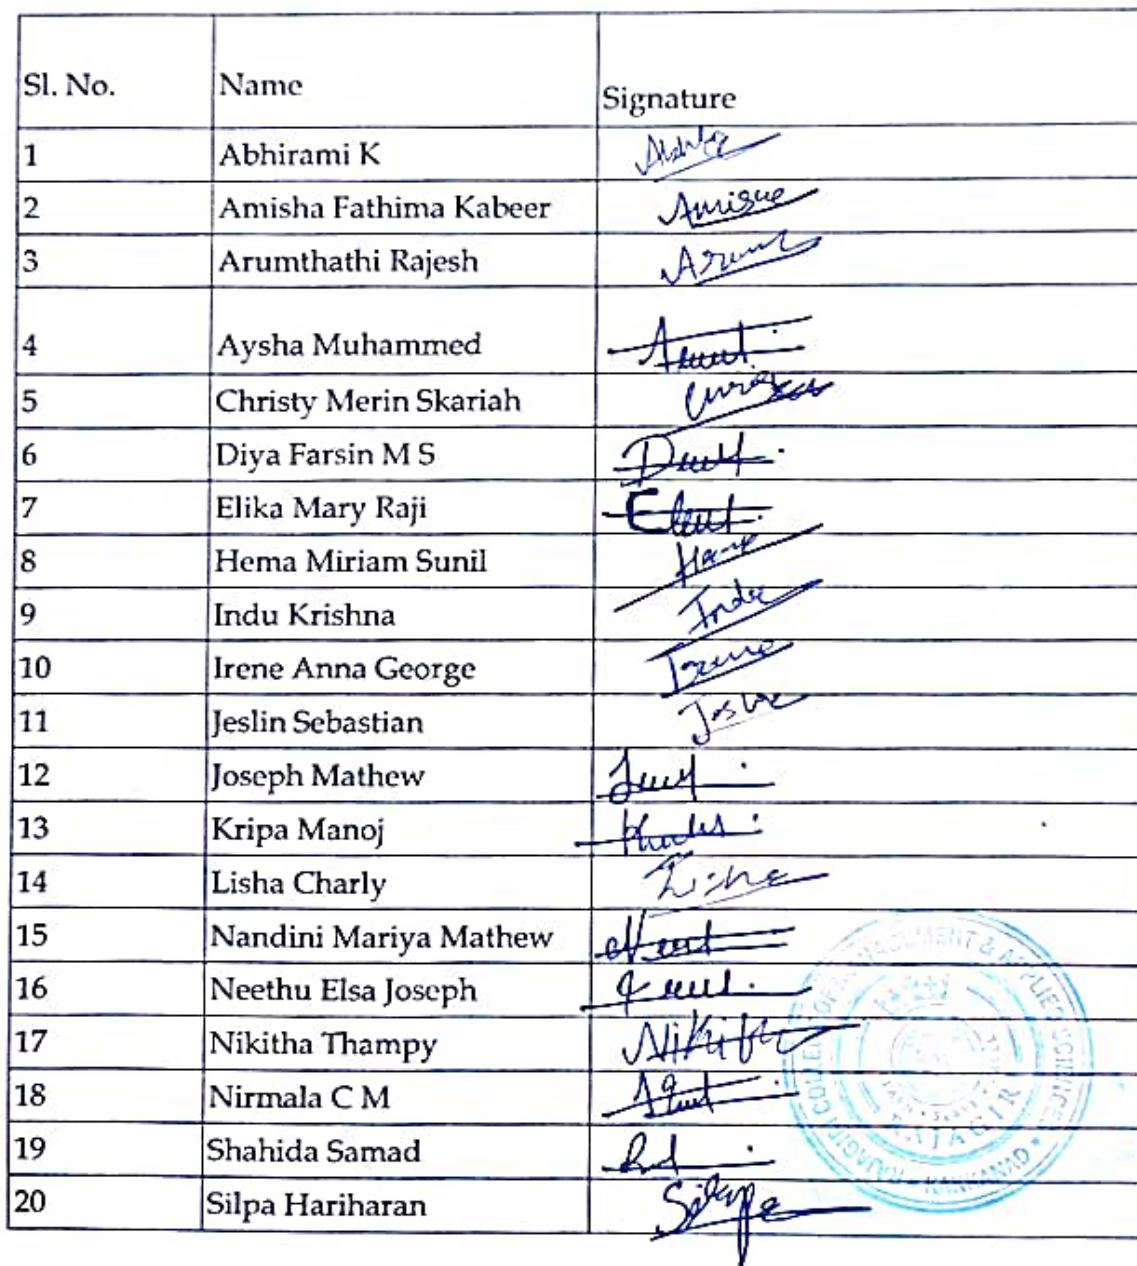 Sl. No. Name Signature
1 Abhirami K
2 Amisha Fathima Kabeer Amisha
3 Arumthathi Rajesh Arum
4 Aysha Muhammed
5 Christy Merin Skariah
6 Diya Farsin M S
7 Elika Mary Raji
8 Hema Miriam Sunil
9 Indu Krishna Indu
10 Irene Anna George Irene
11 Jeslin Sebastian
12 Joseph Mathew
13 Kripa Manoj
14 Lisha Charly Lisha
15 Nandini Mariya Mathew
16 Neethu Elsa Joseph
17 Nikitha Thampy Nikitha
18 Nirmala C M
19 Shahida Samad
20 Silpa Hariharan Silpa
RAJAGIRI COLLEGE OF MANAGEMENT & APPLIED SCIENCES
KAKKANAD
RAJAGIRI